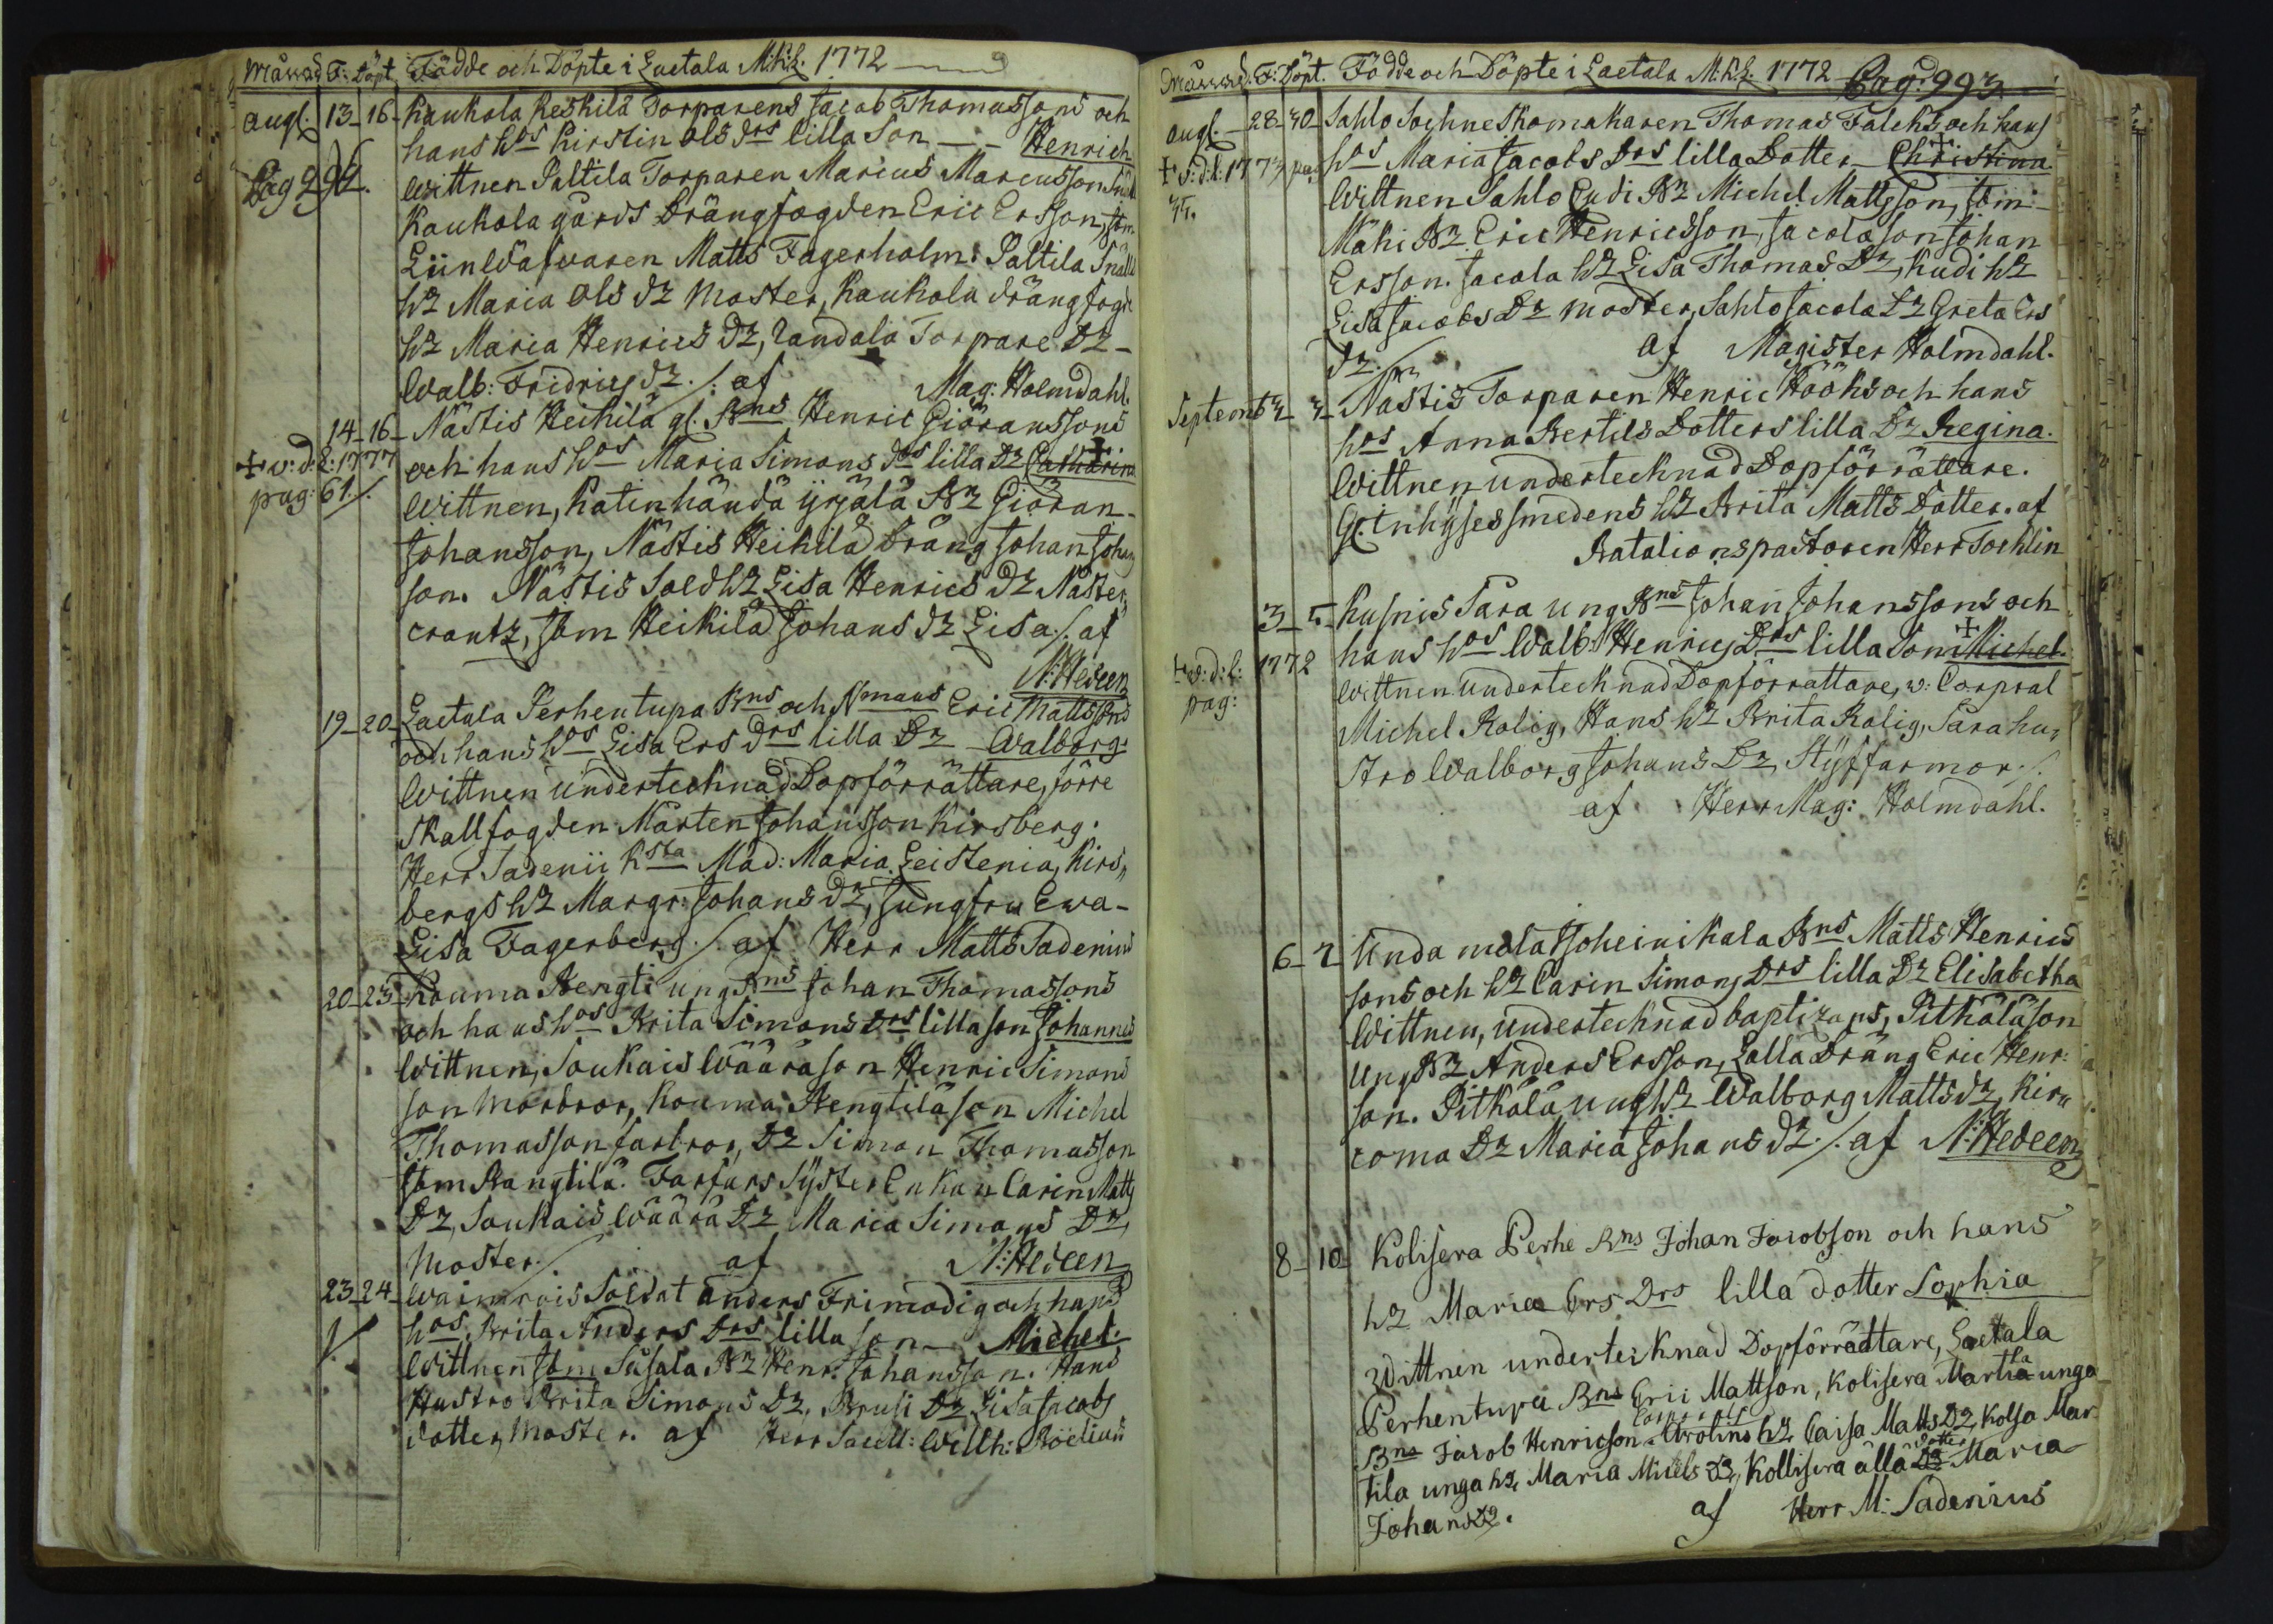 Månad F: Döpt. Födde och Döpte i Laetala M:K:L. 1772
augl. 13 16 Kaukola Keskilä Torparens Jacob Thomassons och
hans hos Kirstin Ols drs lilla Son - Henrich
Pag 992. Wittnen Paltila Torparen Marcus Marcusson
Kaukola gårds Drängfogden Eric Ersson,
Matts Fagerholm: Paltila Snäll
hr Maria Ols dr Moster, Kaukola drängfogd
hr Maria Henrics dr, Randala Torpare Dr
Walb: Fridrics dr ./. af Mag: Holmdahl.
14 16 Nästis Heikilä gl. Bns Henric Giöranssons
+ v: d: l: 1777 och hans hos Maria Simons drs lilla Dr Catharina
pag: 61 ./. Wittnen, Katinhändä yrjälä Br Giöran
Johansson, Nästis Heikilä Dräng Johan Johan
son. Nästis Sold hr Lisa Henrics Dr Näster,
crantz, Jom Heikilä Johans dr Lisa ./. af
N: Hedeen
19 20 Laetala Perhentupa Bns och Nmans Eric Mattssons
och hans hos Lisa Ers drs lilla Dr Walborg.
Wittnen undertechnad Dopförrättare, förre
Skallfogden Mårten Johansson Kirsberg.
Herr Sadenii Ksta Mad: Maria Leistenia, Kirs,,
bergs hr Margr: Johans dr, Jungfru Ewa
Lisa Fagerberg ./. af Herr Matts Sadenius
20 23 Kouma Hengti ung Bns Johan Thomassons
och hans hos Brita Simons Drs lilla son Johannes
Wittnen, Soukais Wäärä son Henric Simons
son Morbror, Kouma Hengtilä son Michel
Thomasson farbror, Dr Simon Thomasson
Jom Rangtilä. Farfars Syster Enkan Carin Matts
Dr, Soukais Wäärä Dr Maria Simons Dr,
Moster ./. af N: Hedeen
23 24 Waimrois Soldat Anders Frimodig och hans
hos Brita Anders Drs lilla son Michel.
Wittnen Jom Susala Br Henr. Johansson. Hans
Hustro Brita Simons Dr, Brusi Dr Lisa Jacobs
dotter, Moster. af Herr Sacell: Willh: Boelius
Månad. F: Döpt. Födde och Döpte i Laetala M:K:L. 1772 Pag: 993
augl. 28 30 Sahlo Sockne Skomakaren Thomas Falcks och hans
+ v: d: l: 1773 pa: hos Maria Jacobs Drs lilla Dotter Christina
Wittnen Sahlo Cudi Br Michel Mattsson, Jom
Mäki Br Eric Henricsson, Jacola son Johan
Ersson. Jacola hr Lisa Thomas Dr, Kudi hr
Lisa Jacobs Dr moster, Sahlo Jacola Dr Greta Ers
Dr ./. af Magister Holmdahl.
Septembr Nästis Torparen Henric Hööks och hans
hos Anna Bertils Dotters lilla Dr Regina.
Wittnen undertecknad Dopförrättare.
Gl. Inhyses smedens hr Brita Matts Dotter. af
Batalionspastoren Herr Tocklin
3 5 Kusnis Sara ung Bns Johan Johanssons och
hans hos Walb: Henrics Drs lilla Son Michel.
+ v: d: l: 1772 Wittnen undertecknad Dopförrättare, v: Corpral
pag: Michel Rolig, Hans hr Brita Rolig, Sara hu,
stro Walborg Johans Dr, Styffarmor ./.
af Herr Mag: Holmdahl.
6 7 Undamola Isoheinikala Bns Matts Henrics
sons och hr Carin Simons Drs lilla Dr Elisabetha
Wittnen, undertecknad baptizans, Pitkälä son
Ung Br Anders Ersson, Lalla Dräng Eric Henr:
son. Pitkälä ung hr Walborg Matts dr, Kir,,
coma Dr Maria Johans dr ./. af N: Hedeen
8 10 Kolisera Perhe Bns Johan Jacobson och hans
hr Maria Ers Drs lilla dotter Sophia
Wittnen undertecknad Dopförrättare, Laetala
Perhentupa Bns Eric Mattson, Kolisera Martla unga
Bns Jacob Henricson hr Caisa Matts Dr, Kolsa Mar
tila unga hr Maria Micels Dr, Kollisera älla dotter Maria
Johans Dr. af Herr M: Sadenius